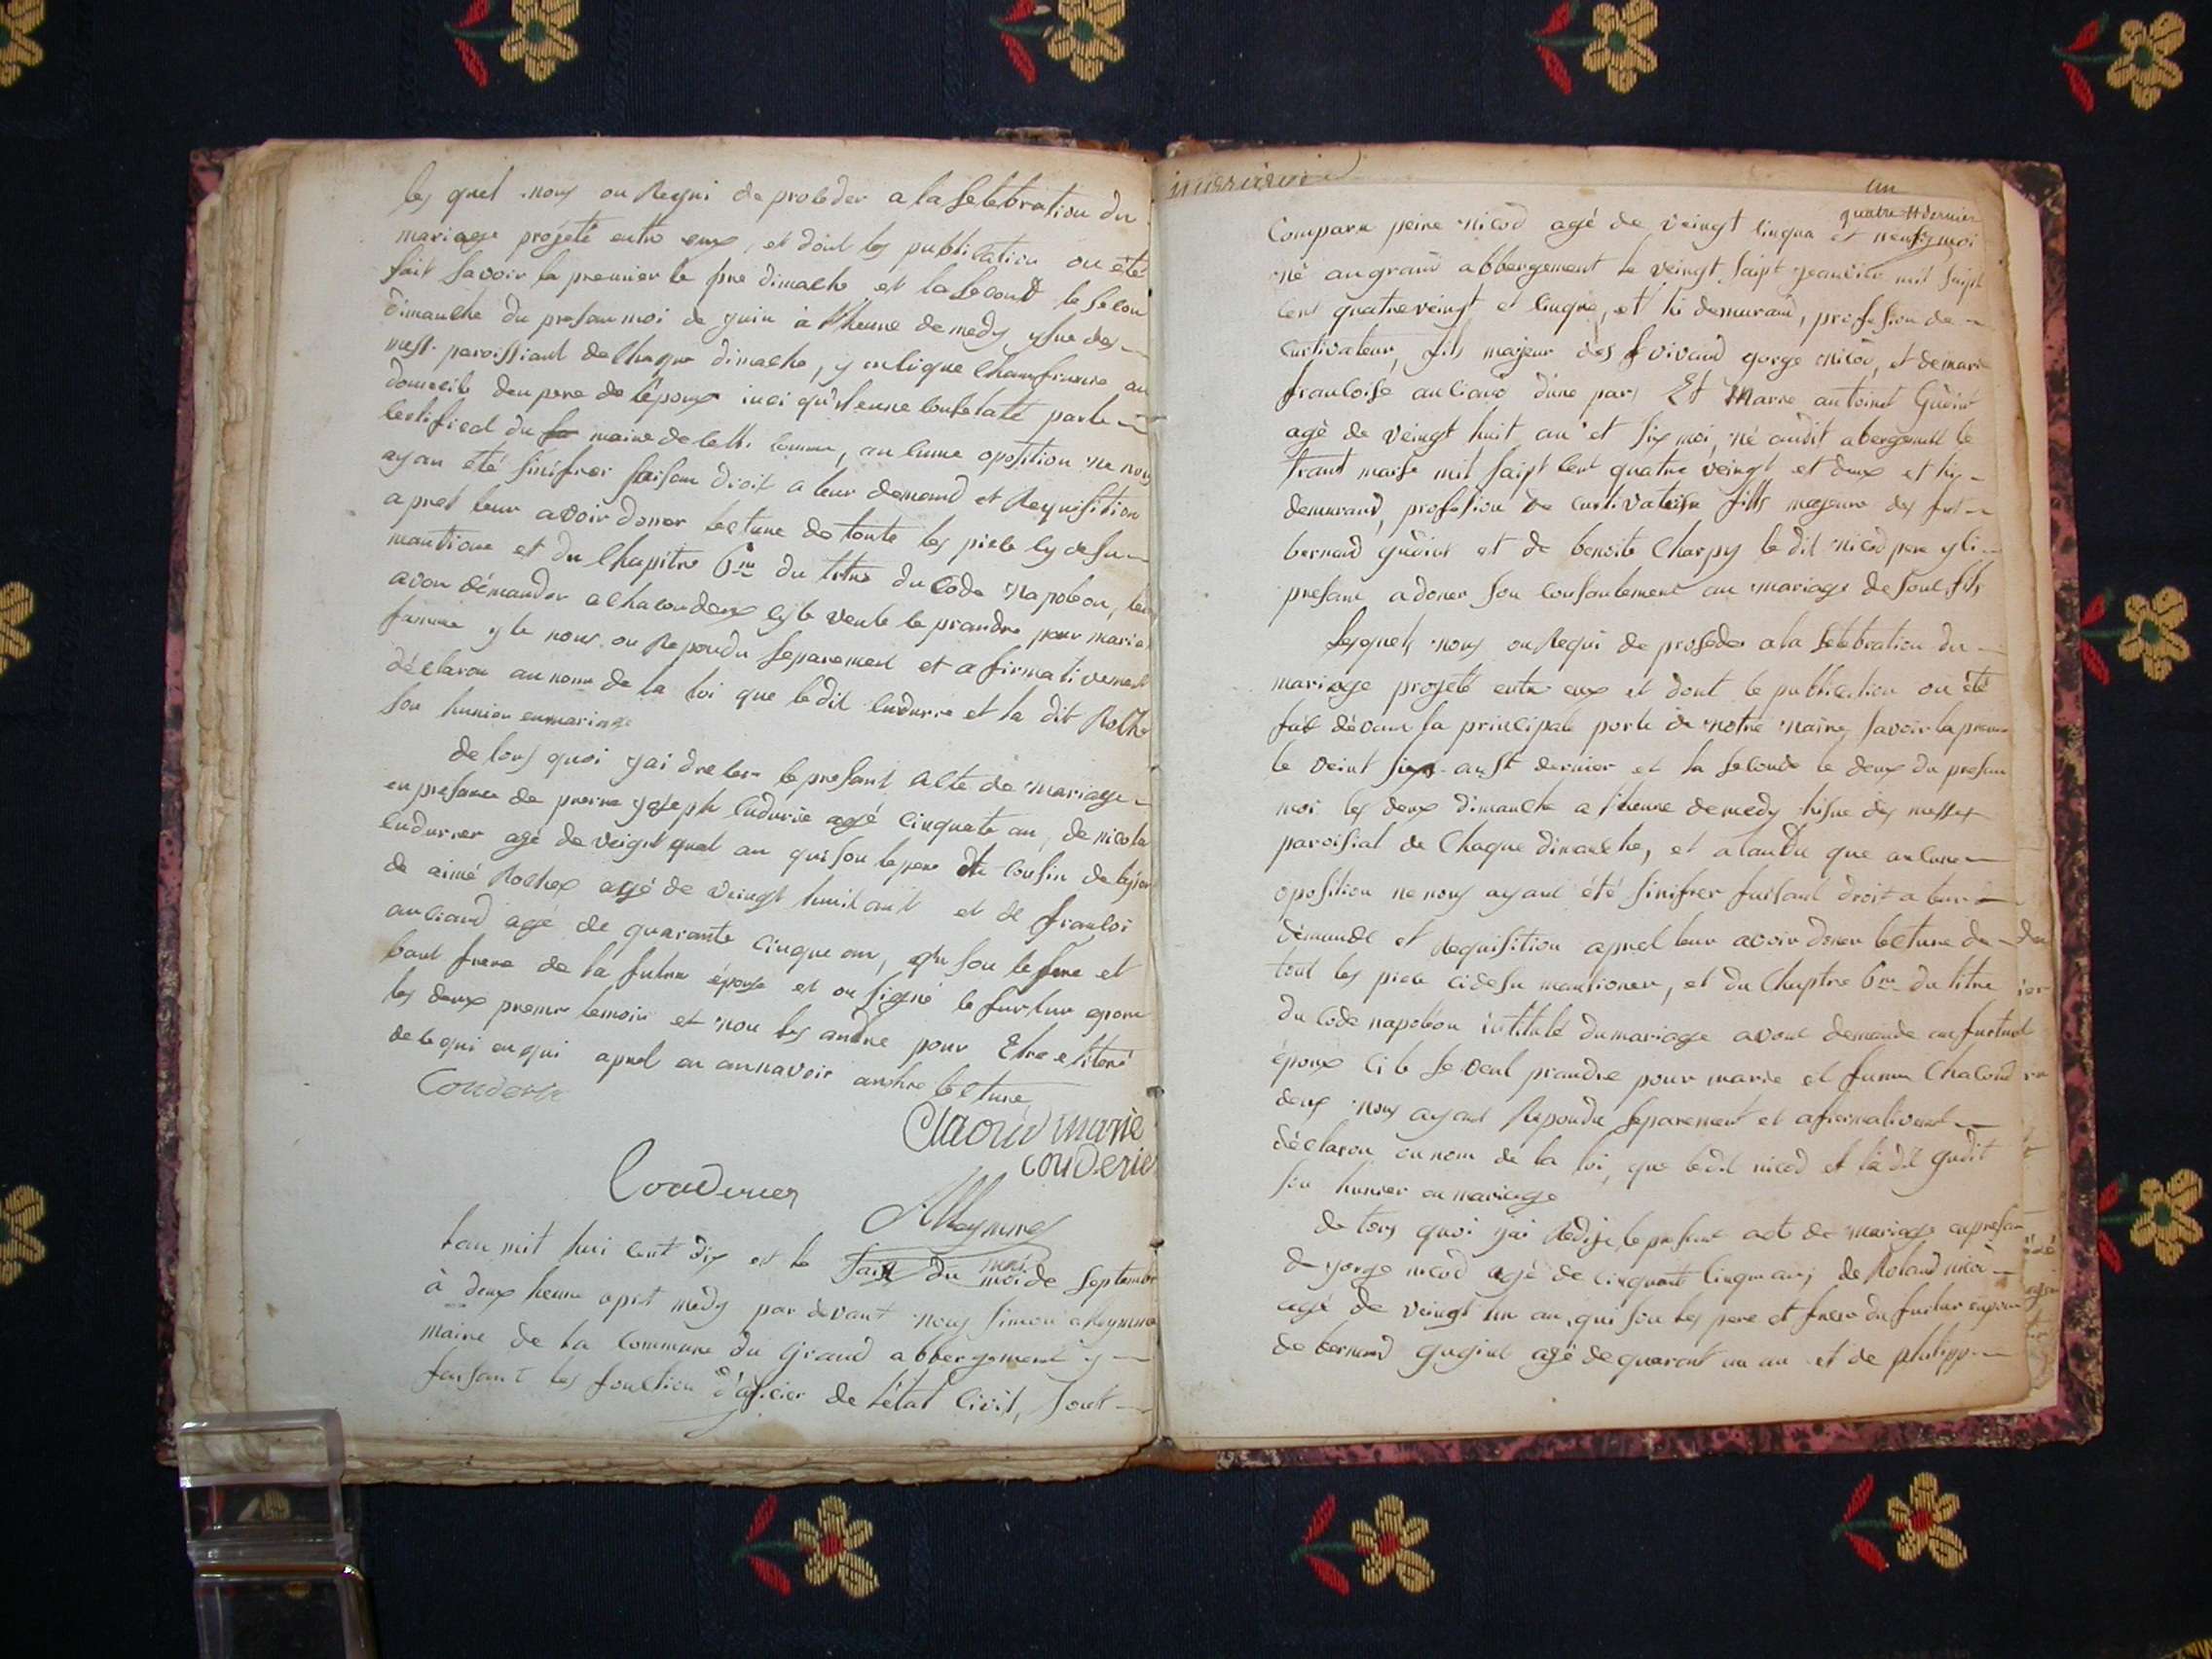 les quel nous on Requi de proceder a la Selebration du
mariage projeté entre eux, et dont les publication on été
fait Savoir la premier le pre dimache et la Secont le Secon
dimanche du presan moi de juin à l'heure de medy ysue des
mess paroissiant de Chaque dimache, y
domicile deu pere de l'époux inci qu'il enne Consetaté par le
Certificat du maire de la Commune, au cune oposition ne nous
ayan été Sinifier faisan droit a leur demand et Requisition
apret leur avoir doner lecture de toute les piece cy desu
mantione et du Chapitre 6me du titre du Code Napoleon,
avon démander a chacon deux sy le veule le prandre pour marie
famme y le nous on Repondu Separement et afirmativement
déclaron au nom de la loi que le dit Cudurie et la dit Roche
Son hunier en mariage
de tous quoi j'ai dresser le presant acte de Mariage
en presance de pierre yoseph Cudurie agé Cinquete an, de nicola
Cudurier agé de veigt quat an qui Son le pere du Cousin de
de aimé Rochex agé de veingt huit ant et de francoi
anciand agé de quarante Cinque an, qui Son le frere et
baut frere de la future épouse et on Signé le furtur epou
les deux premie temoin et non les autre pour Etre
de le qui en qui apret en annavoir an lecture
Couderie
Claoüd marie
couderie
Couduries
Alleymne
Lan mil hui Cent dix et le du moi de Septembre
à deux heure apret midy par devant nous Simon alleymne
maire de la Commune du Grand abbergement y
faisant les fonction d'oficier de l'état Civil, Sont
un
quatre dernier
Compare peire nicod agé de veingt Cinqua et moi
né au grand abbergement le veingt Saipt jeanvier mil Saipt
Cent quatre veingt et Cinque, et hi demurand, profesion de
Curtivateur, fils majeur des vivand gorge nicod, et de mari
francoise anciand d'une part Et Marie antoinet Gudint
agé de veingt huit an et Six moi, né audit abergement le
trant marse mil Saipt Cent quatre veingt et deux et hy
demurand, profesion de Curtivateise fills majeure des fut
bernard gudint et de benoite Charpy le dit nicod pere yci
presant a doner Son Consantement au mariage de Sont fils
Lesquels nous on Requi de proseder a la Selebration du
mariage projeté entre eux et dont le publication on été
fait dévant la principale porte de notre maire, Savoir la premi
le veint Six aust dernier et la Seconde le deux du presan
moi les deux dimanche a l'heure de medy hisue des messes
paroisial de Chaque dimanche, et atandu que aucune
oposition ne nous ayant été Sinifier faisant droit a leur
démande et Requisition apret leur avoir doner lecture de
tout les piece cidesu mantioner, et du Chaptre 6me du titre
du Code napoléon intitulé du mariage avont demande au furtur
époux Ci le Se veul prandre pour marie et famme Chacond
deux nous ayant Repondu Separement et afirmativement
déclaron au nom de la loi, que le dit nicod et la dit gudit
Son hunier en mariage
de tous quoi j'ai Redije le presant acte de mariage en presan
de gorge nicod agé de cinquant Cinque an; de Roland nicod
agé de veingt un an, qui Son les pere et frere du furtur epoux
de bernard gugint agé de quarant un an et de philipp